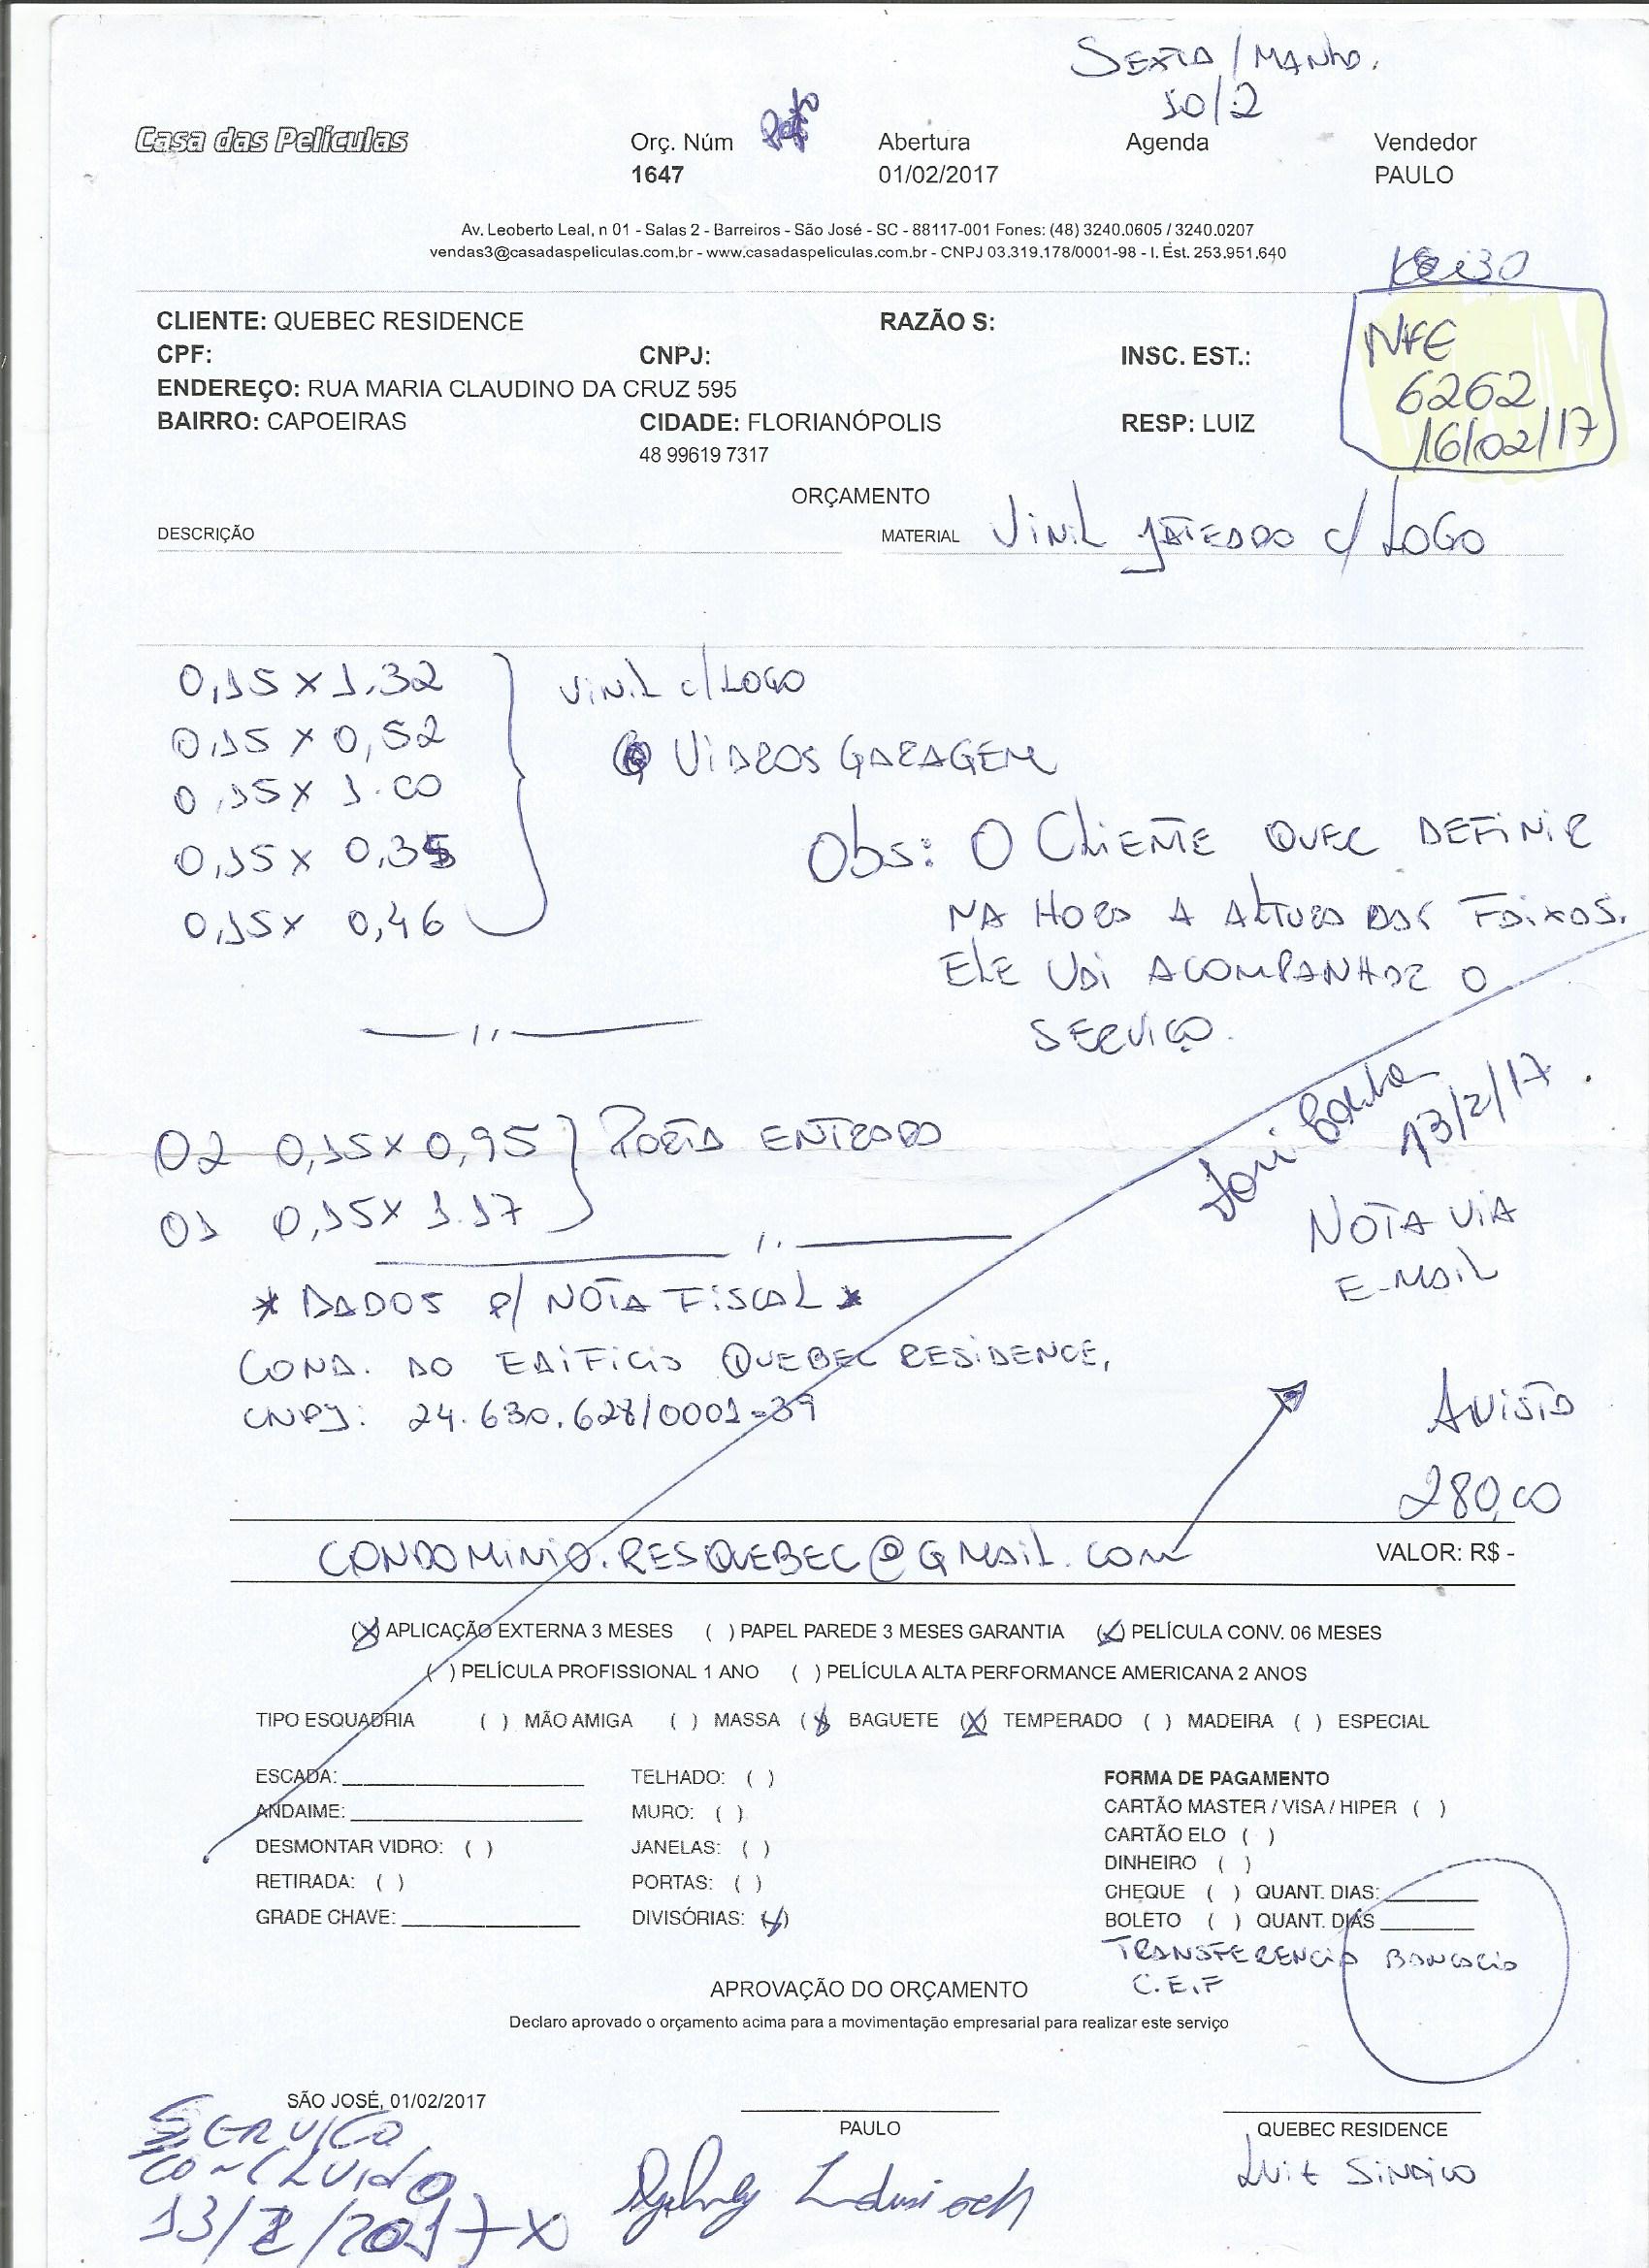 SEXTA / MANHA.
10/2
Casa das Películas
Orç. Núm Abertura Agenda Vendedor
1647 01/02/2017 PAULO
Av. Leoberto Leal, n 01 - Salas 2 - Barreiros - São José - SC - 88117-001 Fones: (48) 3240.0605 / 3240.0207
vendas3@casadaspeliculas.com.br - www.casadaspeliculas.com.br - CNPJ 03.319.178/0001-98 - I. Est. 253.951.640
CLIENTE: QUEBEC RESIDENCE RAZÃO S:
CPF: CNPJ: INSC. EST.:
ENDEREÇO: RUA MARIA CLAUDINO DA CRUZ 595
BAIRRO: CAPOEIRAS CIDADE: FLORIANÓPOLIS RESP: LUIZ
48 99619 7317
NFE
6262
16/02/17
ORÇAMENTO
DESCRIÇÃO MATERIAL VINIL JATEADO C/ LOGO
0,15 X 1.32 VINIL C/ LOGO
0,15 X 0,52 VIDROS GARAGEM
0,15 X 1.00
0,15 X 0,35
0,15 X 0,46
Obs: O CLIENTE QUER DEFINIR
NA HORA A ALTURA DAS FAIXAS.
ELE VAI ACOMPANHAR O
SERVIÇO.
02 0,15 X 0,95 PORTA ENTRADA
01 0,15 X 1.17
13/2/17
NOTA VIA
E-MAIL
* DADOS P/ NOTA FISCAL *
COND. DO EDIFICIO QUEBEC RESIDENCE,
CNPJ: 24.630.628/0001-39
AVISTA
280,00
CONDOMINIO.RESQUEBEC@GMAIL.COM VALOR: R$ -
(X) APLICAÇÃO EXTERNA 3 MESES ( ) PAPEL PAREDE 3 MESES GARANTIA (X) PELÍCULA CONV. 06 MESES
( ) PELÍCULA PROFISSIONAL 1 ANO ( ) PELÍCULA ALTA PERFORMANCE AMERICANA 2 ANOS
TIPO ESQUADRIA ( ) MÃO AMIGA ( ) MASSA (X) BAGUETE (X) TEMPERADO ( ) MADEIRA ( ) ESPECIAL
ESCADA: TELHADO: ( ) FORMA DE PAGAMENTO
ANDAIME: MURO: ( ) CARTÃO MASTER / VISA / HIPER ( )
DESMONTAR VIDRO: ( ) JANELAS: ( ) CARTÃO ELO ( )
RETIRADA: ( ) PORTAS: ( ) DINHEIRO ( )
GRADE CHAVE: DIVISÓRIAS: (X) CHEQUE ( ) QUANT. DIAS:
BOLETO ( ) QUANT. DIAS
TRANSFERENCIA BANCARIA
C.E.F
APROVAÇÃO DO ORÇAMENTO
Declaro aprovado o orçamento acima para a movimentação empresarial para realizar este serviço
SÃO JOSÉ, 01/02/2017
PAULO QUEBEC RESIDENCE
LUIZ SINDICO
SERVIÇO
CONCLUIDO
13/2/2017 X